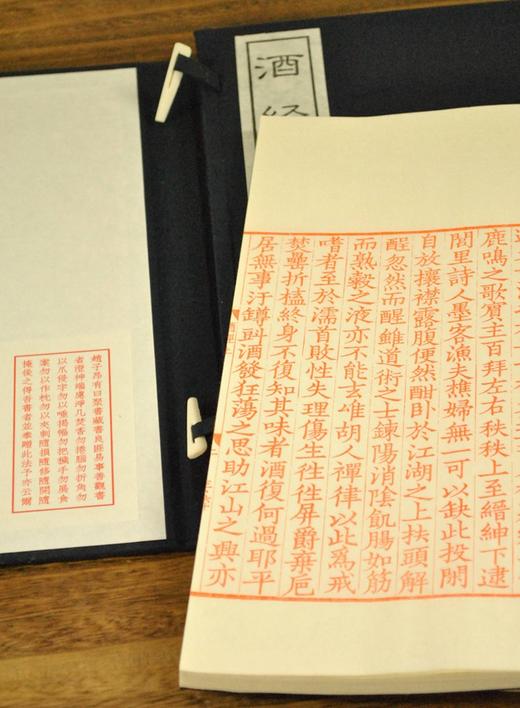 酒
経
鹿鳴之歌賓主百拜左右秩秩上至縉紳下逮
閭里詩人墨客漁夫樵婦無一可以缺此投閑
自放攘襟露腹便然酣卧於江湖之上扶頭解
酲忽然而醒雖道術之士鍊陽消陰飢腸如筋
而熟穀之液亦不能去唯胡人禪律以此為戒
嗜者至於濡首敗性失理傷生往往屏爵棄巵
焚罍折榼終身不復知其味者酒復何過耶平
居無事汙罇㪷酒發狂蕩之思助江山之興亦
趙子昂有曰聚書藏書良匪易事善觀書
者澄神端慮淨几焚香勿捲腦勿折角勿
以爪侵字勿以唾揭幅勿把穢手勿展食
案勿以作枕勿以夾刺隨損隨修隨開隨
掩後之得吾書者並奉贈此法子亦云爾